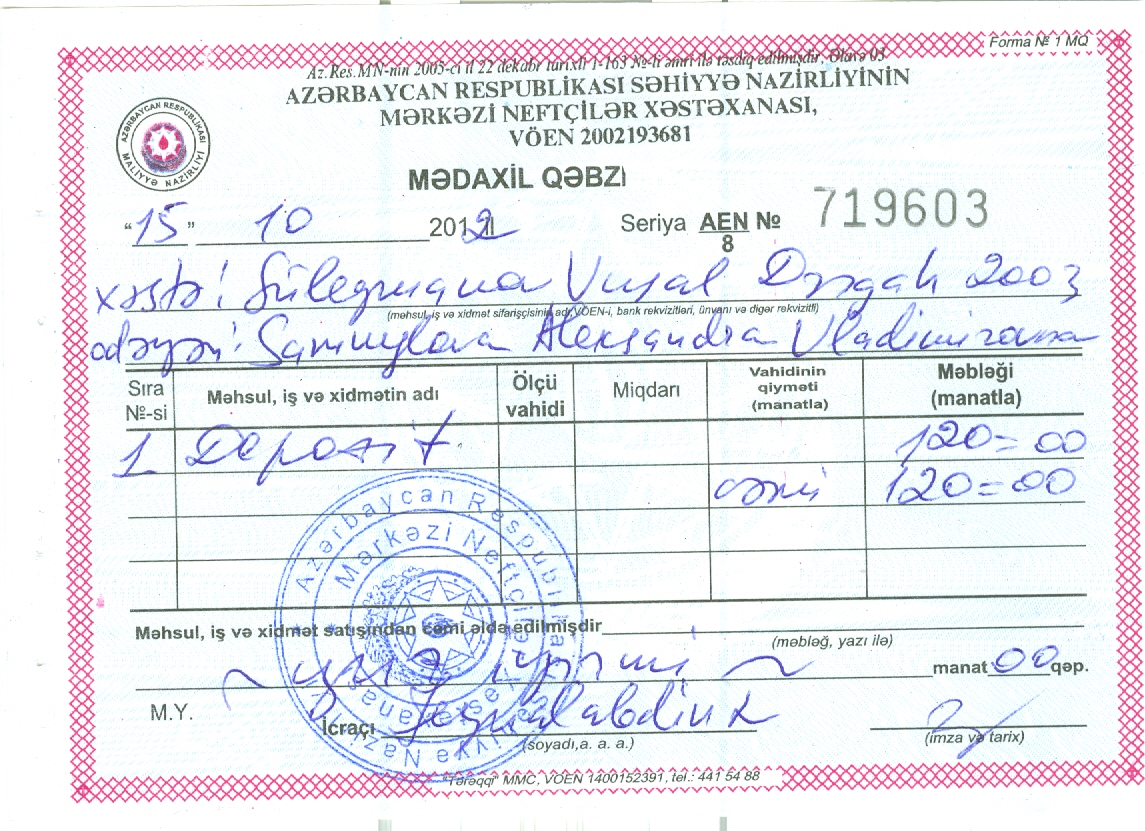 Forma № 1 MQ
Az.Res.MN-nin 2005-ci il 22 dekabr tarixli I-163 №-li əmri ilə təsdiq edilmişdir. Əlavə 03
AZƏRBAYCAN RESPUBLİKASI SƏHİYYƏ NAZİRLİYİNİN
MƏRKƏZİ NEFTÇİLƏR XƏSTƏXANASI,
VÖEN 2002193681
AZƏRBAYCAN RESPUBLİKASI MALİYYƏ NAZİRLİYİ
MƏDAXİL QƏBZİ
“15” 10 2012 il Seriya AEN № 719603
8
xəstə: Süleymanova Vusal 2003
(məhsul, iş və xidmət sifarişçisinin adı, VÖEN-i, bank rekvizitləri, ünvanı və digər rekvizitli)
ödəyən: Samuylova Aleksandra Vladimirovna
Sıra №-si Məhsul, iş və xidmətin adı Ölçü vahidi Miqdarı Vahidinin qiyməti (manatla) Məbləği (manatla)
1 Deposit 120=00
cəmi 120=00
Azərbaycan Respublikası Səhiyyə Nazirliyi
Mərkəzi Neftçilər Xəstəxanası
Məhsul, iş və xidmət satışından cəmi əldə edilmişdir
(məbləğ, yazı ilə)
~ yüz iyirmi ~ manat 00 qəp.
M.Y. İcraçı
(soyadı,a. a. a.) (imza və tarix)
"Tərəqqi" MMC, VÖEN 1400152391, tel.: 441 54 88